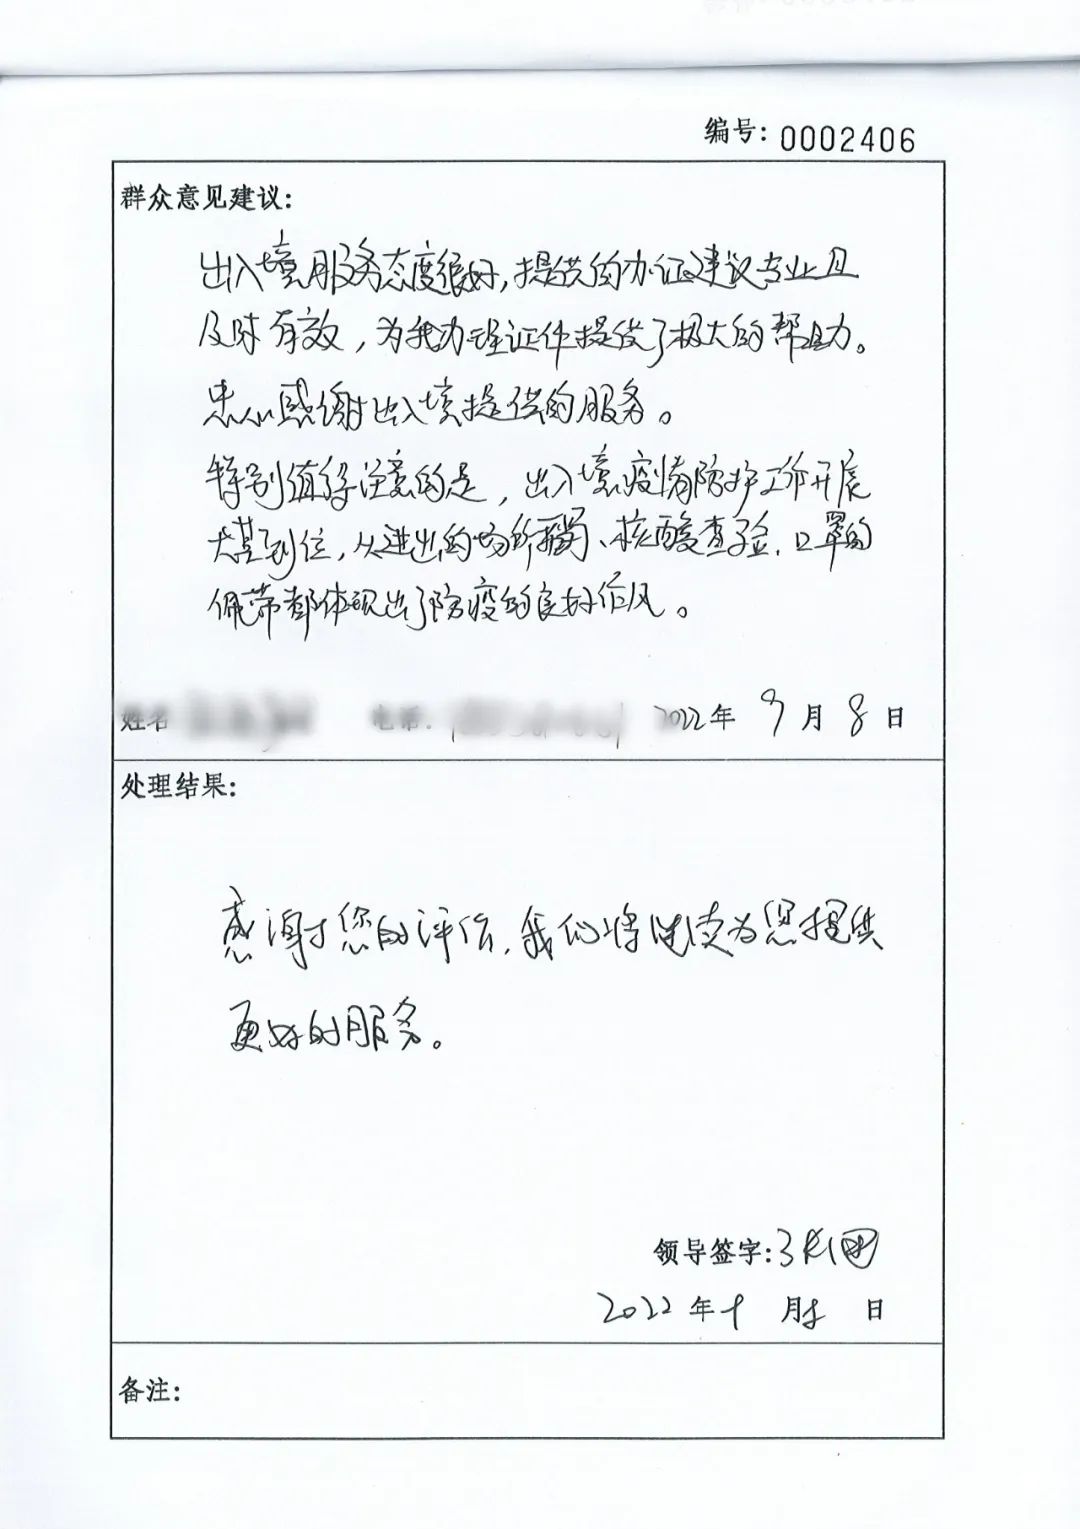 编号: 0002406
群众意见建议:
出入境服务态度很好,提供的办证建议专业且
及时有效,为我办理证件提供了极大的帮助。
忠心感谢出入境提供的服务。
特别值得注意的是,出入境疫情防护工作开展
十分到位,从进出的场所、核酸查验、口罩的
佩带都体现出了防疫的良好作风。
姓名 电话: 2022年 9月 8日
处理结果:
感谢您的评价,我们将继续为您提供
更好的服务。
领导签字:
2022年 月 日
备注: